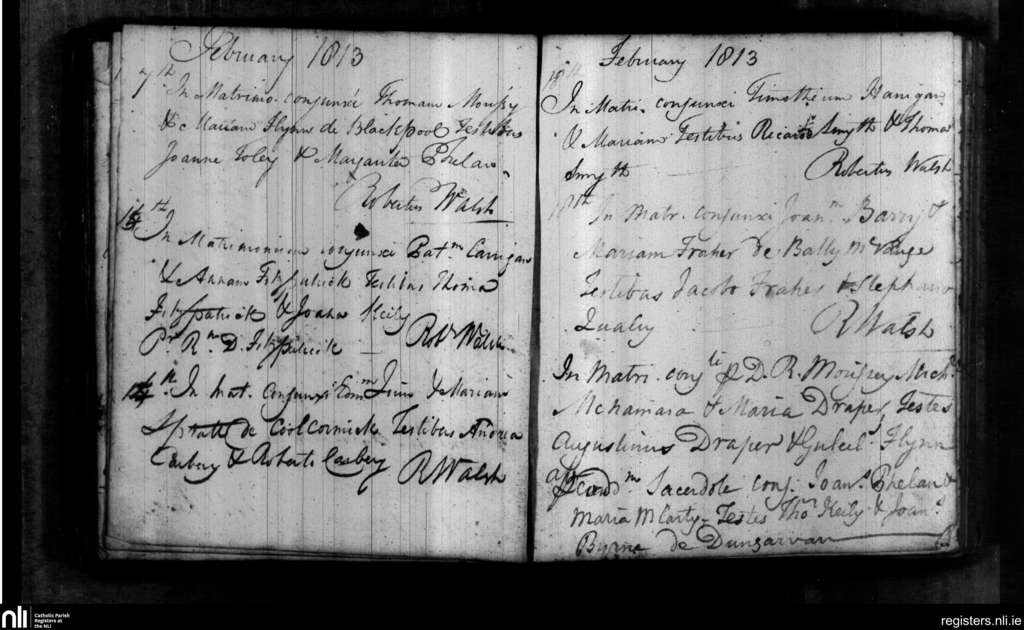 February 1813
7th
In Matrimo. conjunxi Thomam
& Mariam Flynn de Blackpool Testibus
Joanne Foley & Margarita Phelan
Robertus Walsh
th
In Matrimonium conjunxi Pat.m Carrigan
& Annam Fitzpatrick Testibus Thoma
Fitzpatrick & Joana Keily
Pr. Rm. D. Fitzpatrick — Robt Walsh
In mat. conjunxi Edm.m & Mariam
Spratt de Coolcormick Testibus Andrea
Carbery & Roberto Carbery
R Walsh
February 1813
th
In Matri. conjunxi Timotheum Hanigan
& Mariam Testibus Ricardo Smyth & Thoma
Smyth
Robertus Walsh
18th In Matr. conjunxi Joan.m Barry &
Mariam Fraher de Bally
Testibus Jacobo Fraher & Stephano
Qualy
R Walsh
In Matri. conj. D. R. Mich.
McNamara & Maria Draper, Testes
Augustinus Draper & Guliel. Flynn
eod.m Sacerdote conj. Joan. Phelan &
Maria McCarty - Testes Thom Keily & Joan.
Byrne de Dungarvan
nli
Catholic Parish
Registers at
the NLI
registers.nli.ie